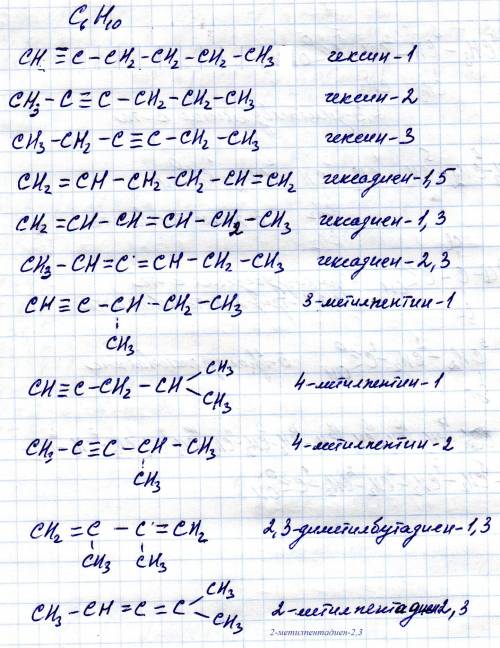 C₆H₁₀
CH ≡ C – CH₂ – CH₂ – CH₂ – CH₃ гексин-1
CH₃ – C ≡ C – CH₂ – CH₂ – CH₃ гексин-2
CH₃ – CH₂ – C ≡ C – CH₂ – CH₃ гексин-3
CH₂ = CH – CH₂ – CH₂ – CH = CH₂ гексадиен-1,5
CH₂ = CH – CH = CH – CH₂ – CH₃ гексадиен-1,3
CH₃ – CH = C = CH – CH₂ – CH₃ гексадиен-2,3
CH ≡ C – CH – CH₂ – CH₃ 3-метилпентин-1
CH₃
CH₃
CH ≡ C – CH₂ – CH 4-метилпентин-1
CH₃
CH₃ – C ≡ C – CH – CH₃ 4-метилпентин-2
CH₃
CH₂ = C – C = CH₂ 2,3-диметилбутадиен-1,3
CH₃ CH₃
CH₃
CH₃ – CH = C = C 2-метилпентадиен2,3
CH₃
2-метилпентадиен-2,3